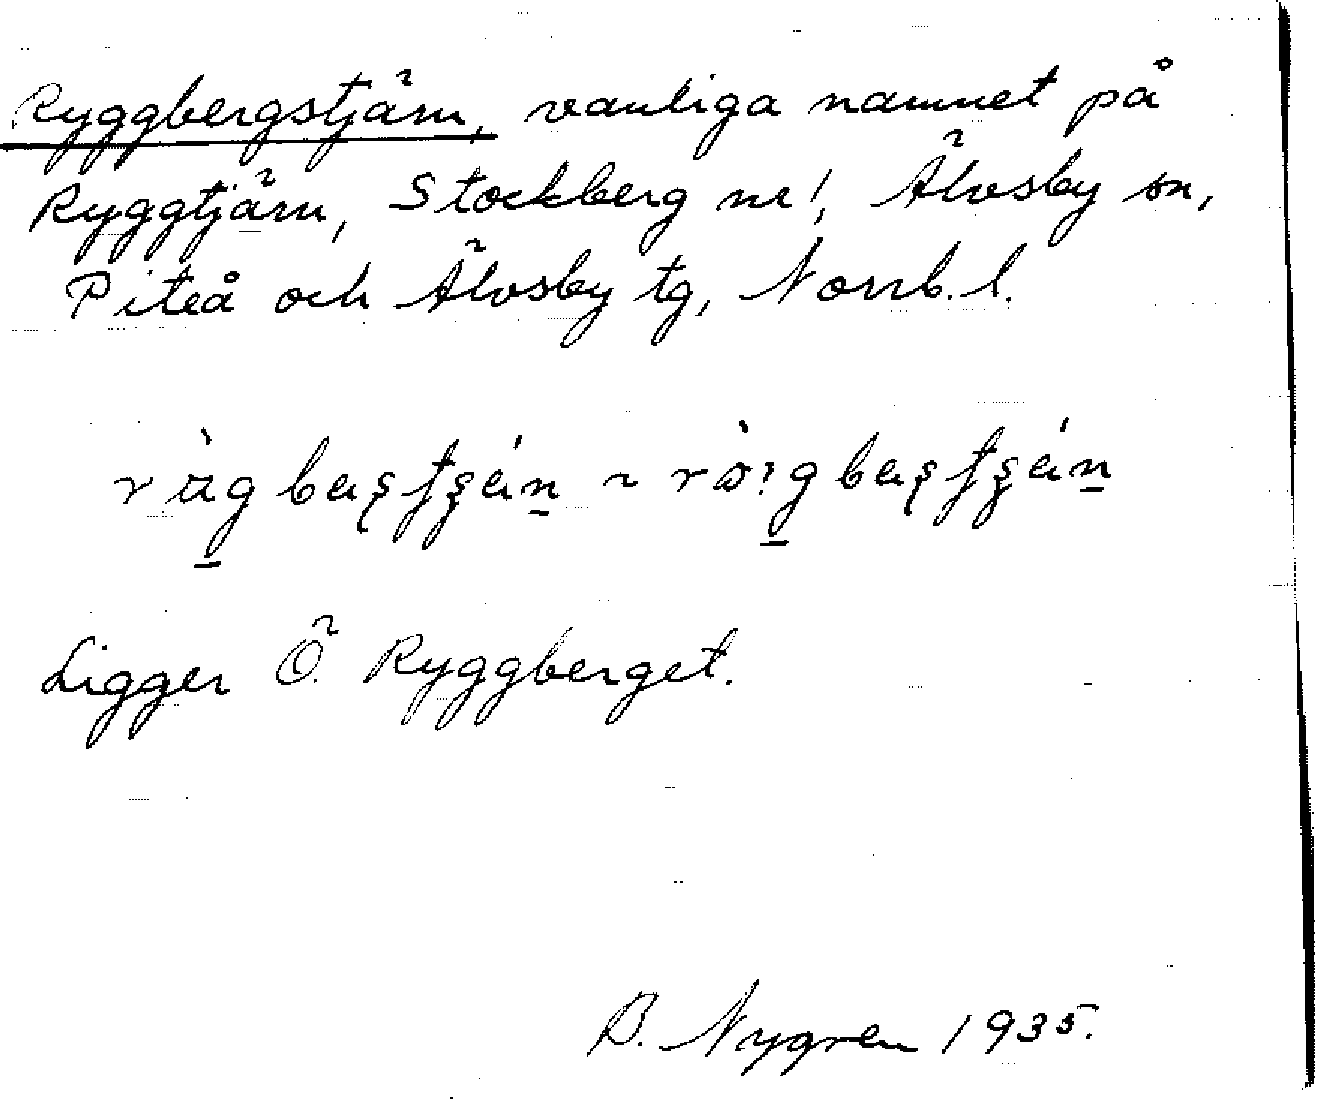 Ryggbergstjärn, vanliga namnet på
Ryggtjärn, Stockberg nr 1, Älvsby sn,
Piteå och Älvsby tg, Norrb. l.
Ligger Ö. Ryggberget.
B. Nygren 1935.